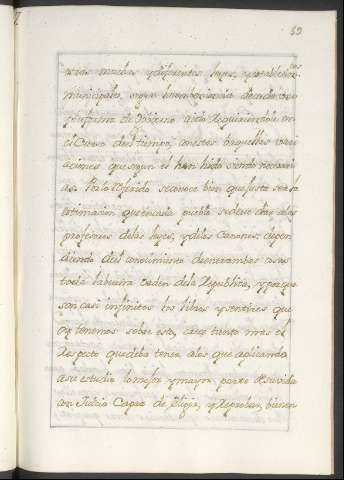 59
para muchas y diferentes leyes, y establecim.tos
municipales, segun
de Gobierno a ido
el Curso del tiempo, con estas y aquellas vari
aciones que segun el han hido siendo necesari
as. Por lo referido se conoce bien que justa sea la
estimacion que en cada pueblo se deve dar a los
profesores de las leyes, y de los Canones; depen
diendo del conocimiento de entrambas cosas
toda la buena orden de la Republica, y porque
son casi infinitos los libros y escritos que
oy tenemos sobre esto, crece tanto mas el
respecto que deba tener a los que aplicando
a su estudio lo mejor y mayor parte de su vida
con Juicio Capaz de elegir, y reprobar, bienen